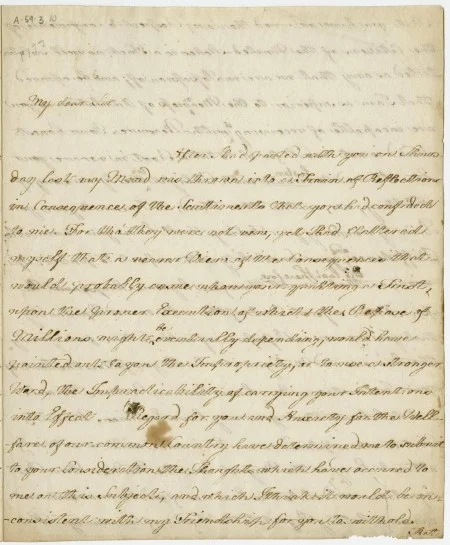 A-59.3.10
My dear Sir
After I had parted with you on Thurs-
day last my Mind was thrown into a Train of Reflections
in Consequence of the Sentiments that you had confided
to me. For tho they were not new, yet I had flattered
myself that a nearer View of the Consequences that
would probably ensue upon your quitting a Trust,
upon the proper Execution of which the Repose of
Millions might be eventually depending, would have
pointed out to you the Impropriety, or to use a stronger
Word, the Impracticability of carrying your Intentions
into Effect. Regard for you and Anxiety for the Well-
fare of our common Country have determined me to submit
to your Consideration the Thoughts which have occured to
me on this Subject, and which I think it would be in-
-consistent with my Friendship for you to withold.
But